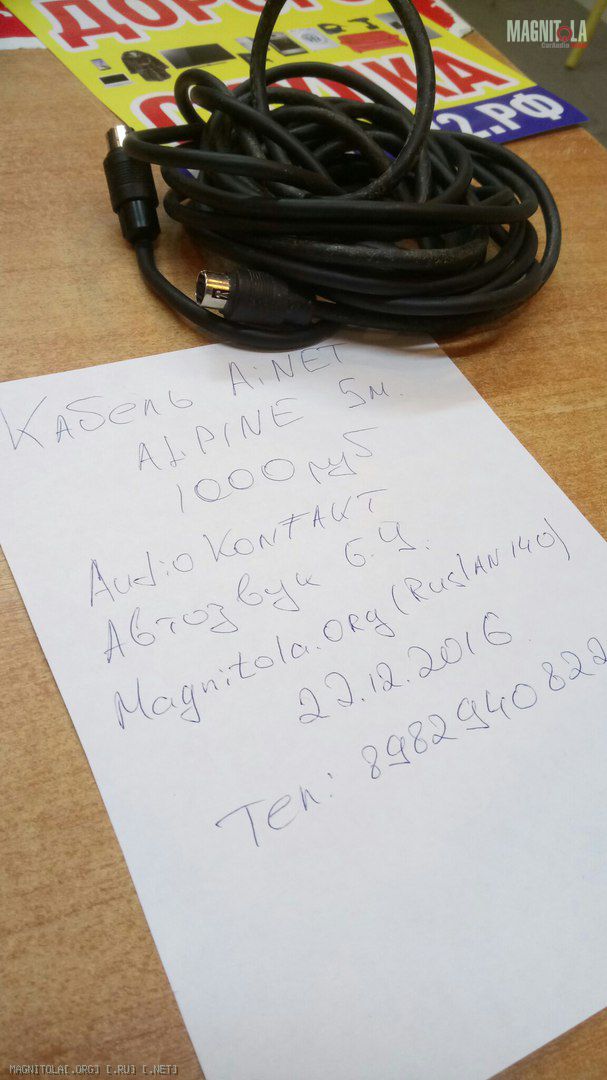 ДОРОГО
MAGNITOLA
CarAudio
СКУПКА
2.РФ
Кабель AiNET
ALPINE 5м.
1000 руб
Audio KonTAKT
Автозвук б.у.
Magnitola.org (Ruslan140)
22.12.2016
Тел: 8982940822
MAGNITOLA[.ORG] [.RU] [.NET]